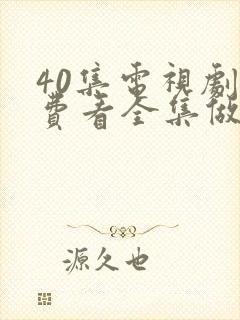 40集電視劇
費看全集做
源久也